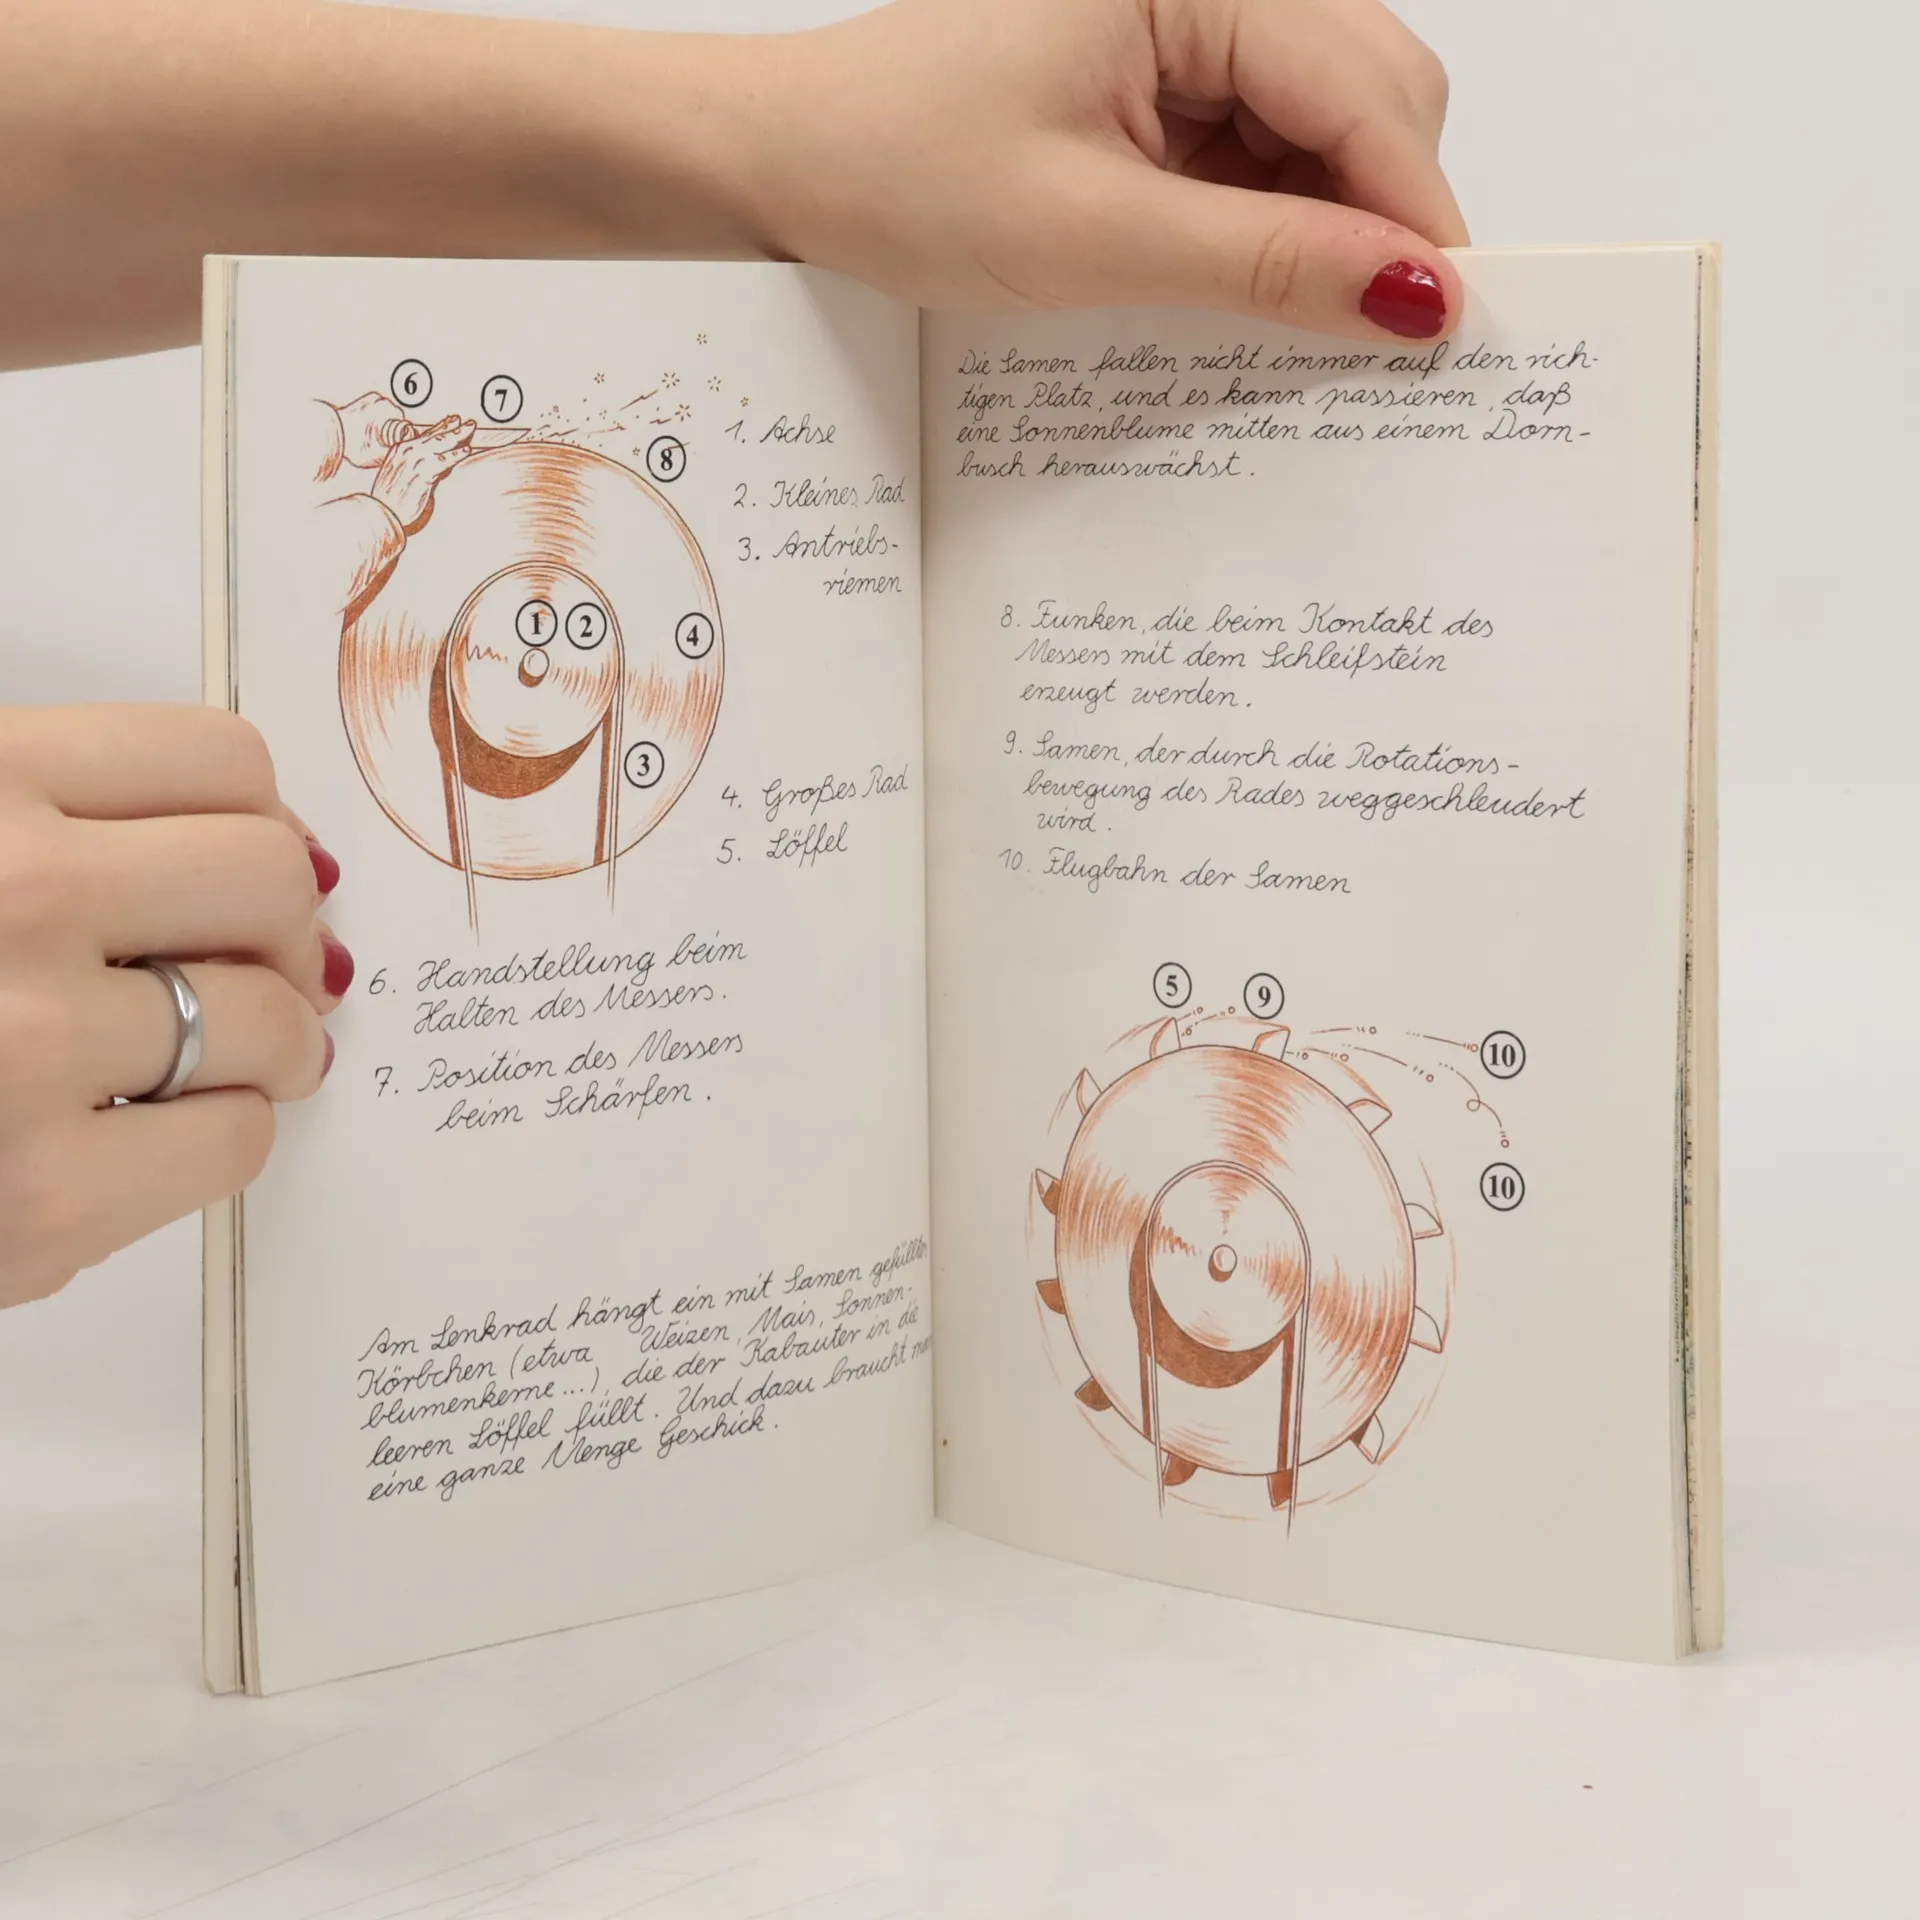 6
7
8
1. Achse
2. Kleines Rad
3. Antriebs-
riemen
1
2
4
3
4. Großes Rad
5. Löffel
6. Handstellung beim
Halten des Messers.
7. Position des Messers
beim Schärfen.
Am Lenkrad hängt ein mit Samen gefülltes
Körbchen (etwa Weizen, Mais, Sonnen-
blumenkerne...), die der Kabauter in die
leeren Löffel füllt. Und dazu braucht man
eine ganze Menge Geschick.
Die Samen fallen nicht immer auf den rich-
tigen Platz, und es kann passieren, daß
eine Sonnenblume mitten aus einem Dorn-
busch herauswächst.
8. Funken, die beim Kontakt des
Messers mit dem Schleifstein
erzeugt werden.
9. Samen, der durch die Rotations-
bewegung des Rades weggeschleudert
wird.
10. Flugbahn der Samen
5
9
10
10